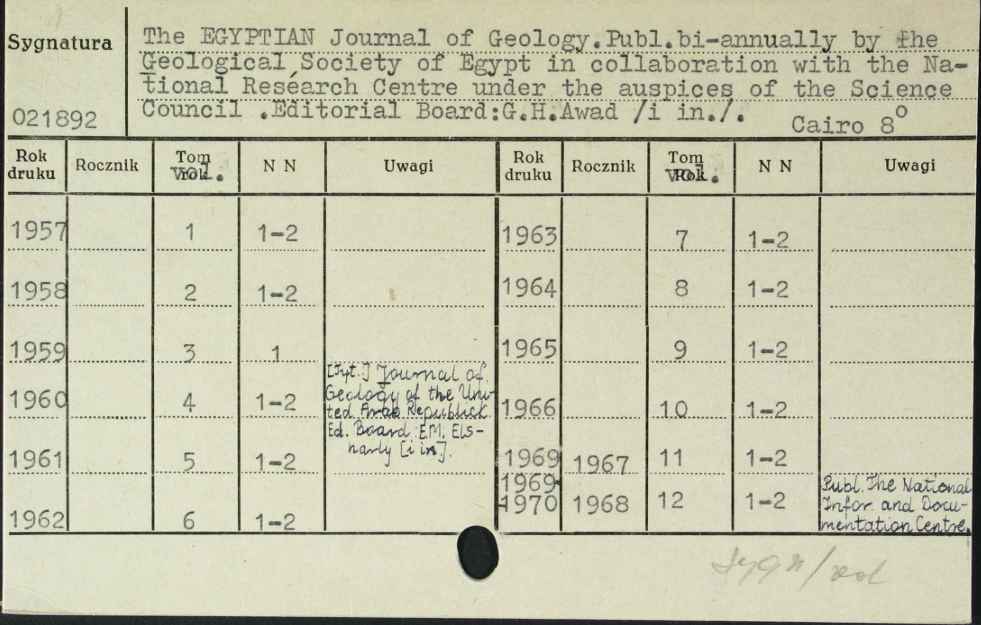 Sygnatura
021892
The EGYPTIAN Journal of Geology.Publ.bi-annually by the
Geological Society of Egypt in collaboration with the Na-
tional Research Centre under the auspices of the Science
Council .Editorial Board:G.H.Awad /i in./.
Cairo 8°
Rok druku Rocznik Tom Vol. N N Uwagi Rok druku Rocznik Tom Vol. N N Uwagi
1957 1 1-2 1963 7 1-2
1958 2 1-2 1964 8 1-2
1959 3 1 1965 9 1-2
[Tyt.] Journal of
Geology of the Uni-
ted Arab Republick
Ed. Board: E.M. Els-
harly [i in].
1960 4 1-2 1966 10 1-2
1961 5 1-2 1969 1967 11 1-2
1962 6 1-2 1969-
1970 1968 12 1-2
Publ. The National
Infor. and Docu-
mentation Centre.